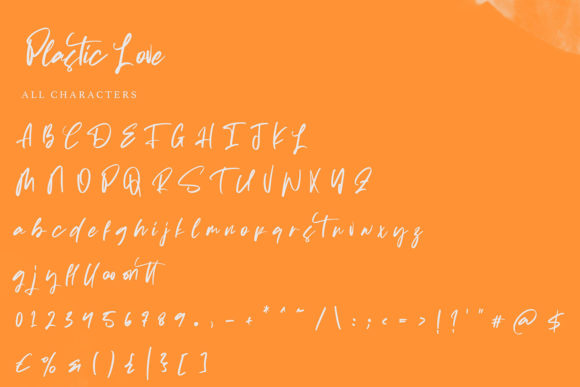 Plastic Love
ALL CHARACTERS
A B C D E F G H I J K L
M N O P Q R S T U V W X Y Z
a b c d e f g h i j k l m n o p q r s t u v w x y z
g j y ff ll oo on tt
0 1 2 3 4 5 6 7 8 9 . , - + * ^ ~ / \ : ; < = > ! ? ' " # @ $
€ % & ( ) { | } [ ]